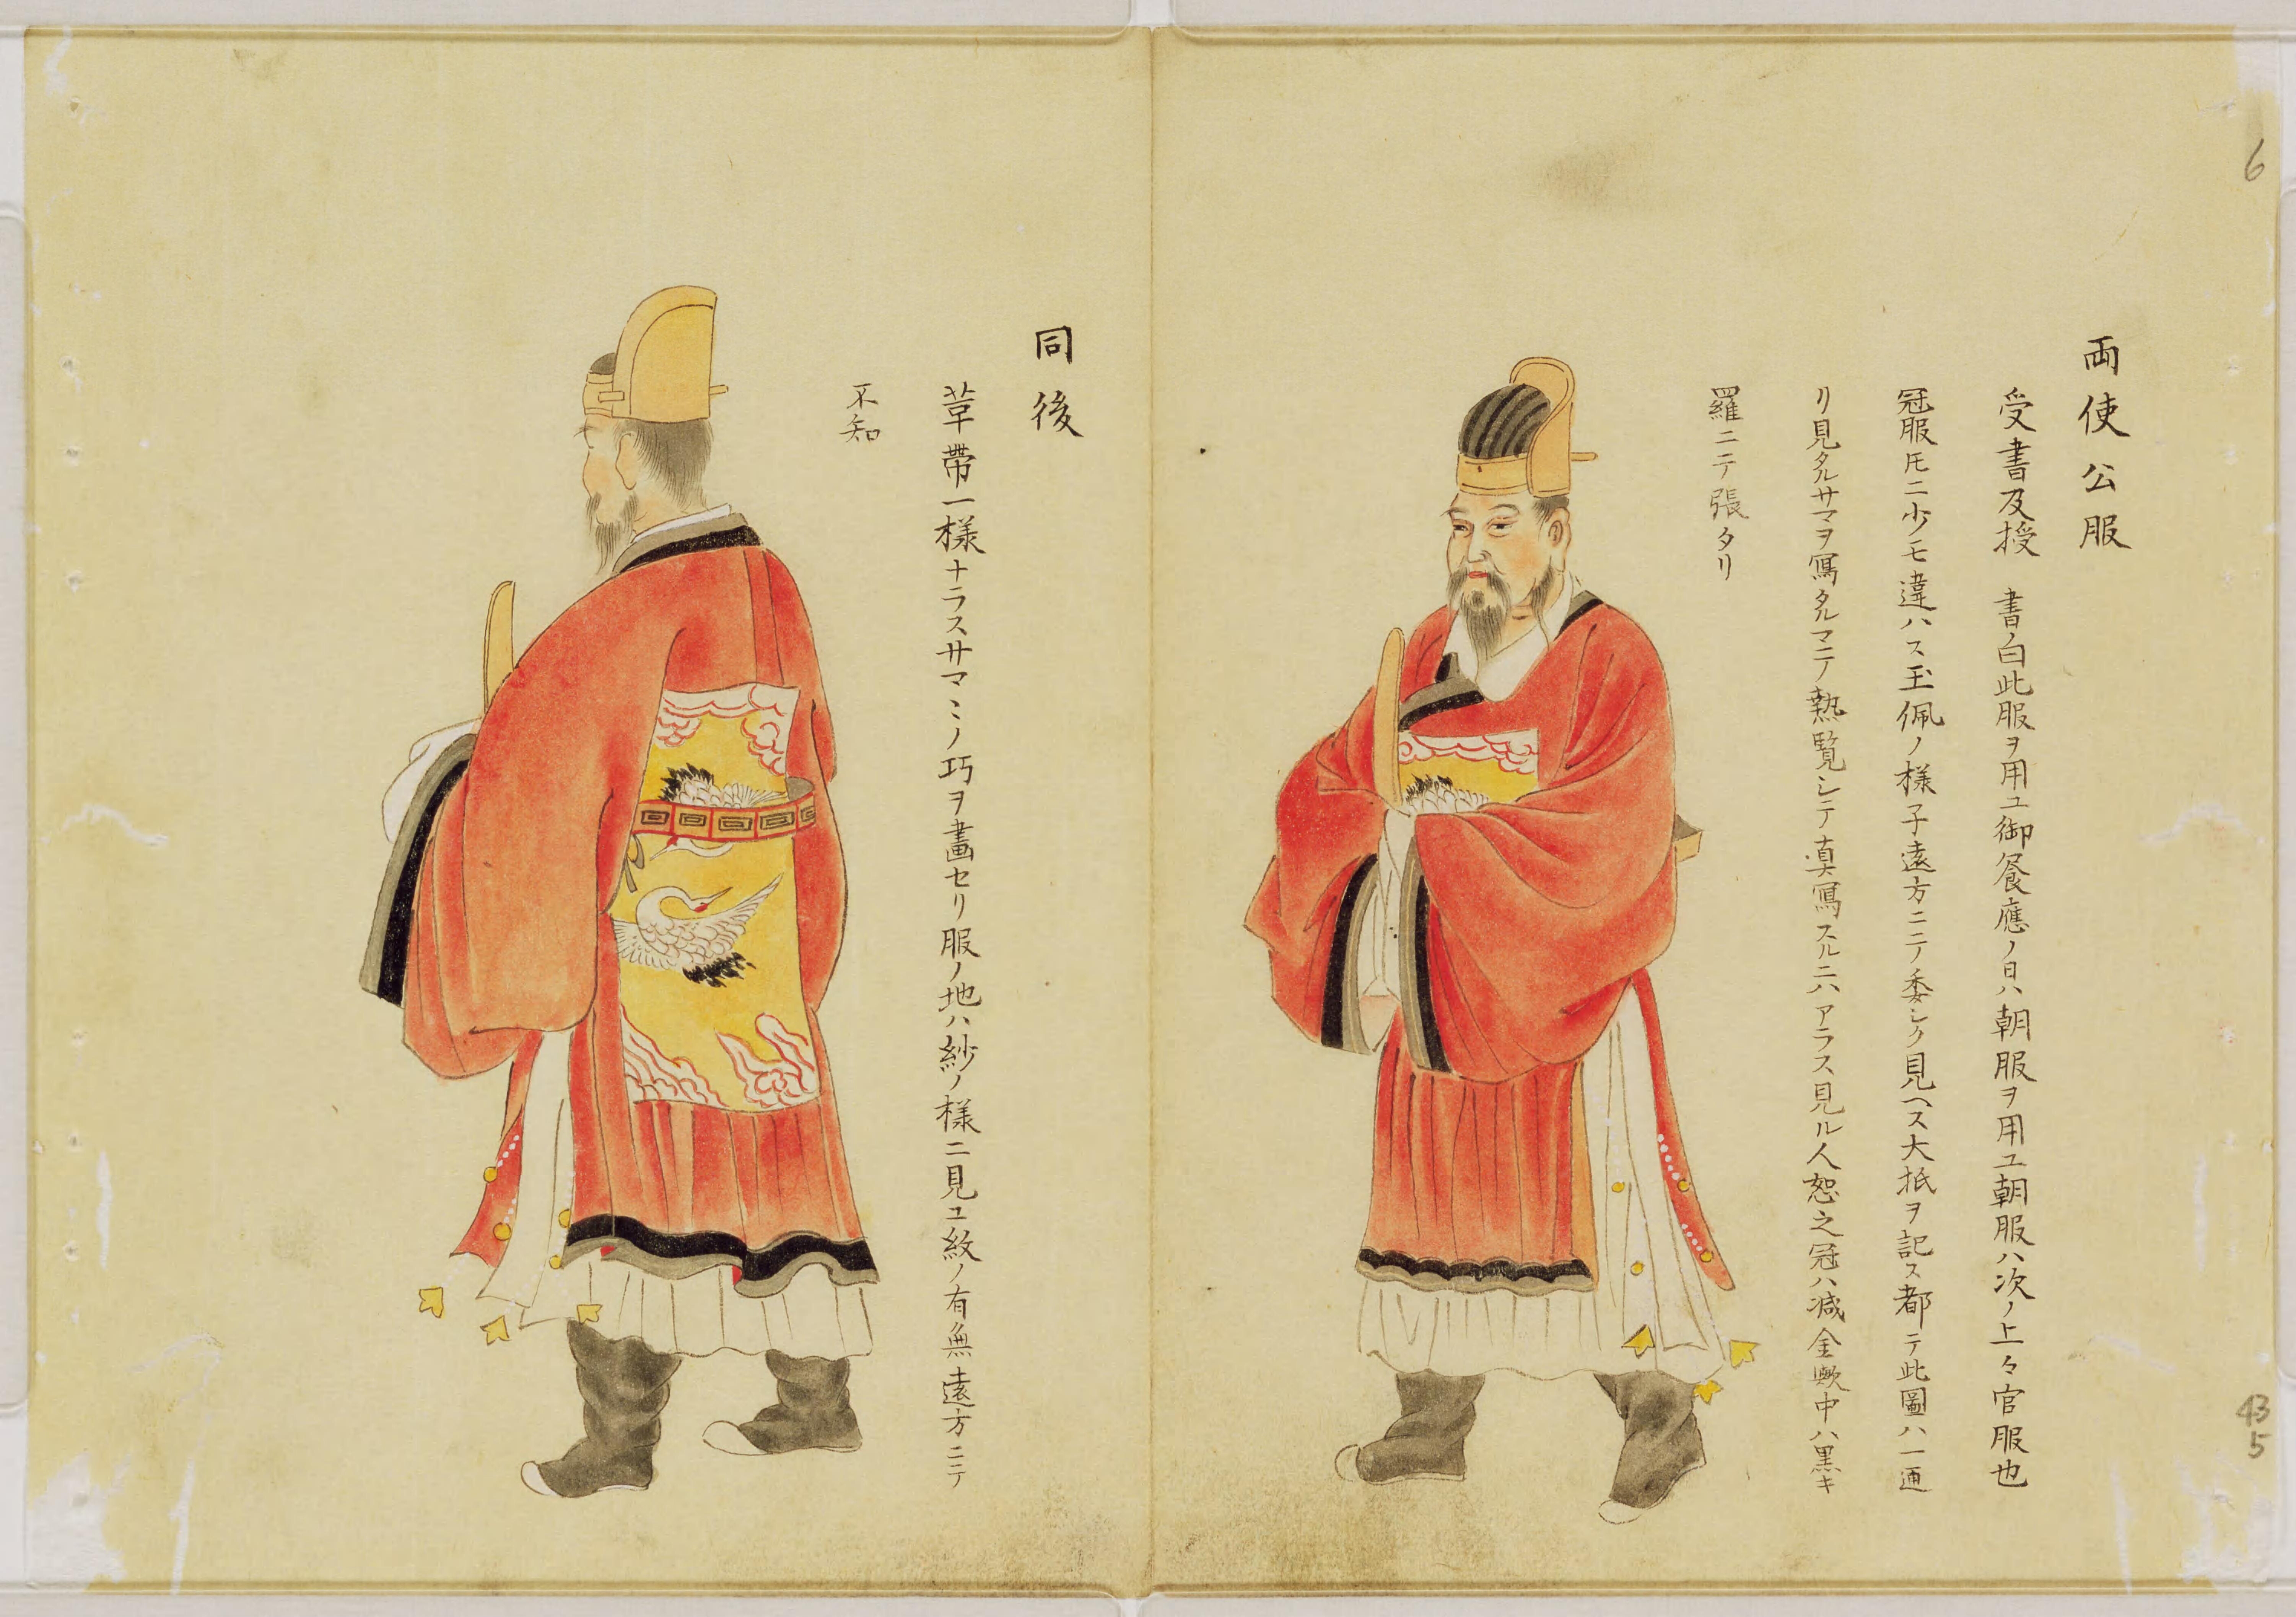 両使公服
受書及授書白此服ヲ用ユ御饗應ノ日ハ朝服ヲ用ユ朝服ハ次ノ上々官服也
冠服圧ニ少モ違ハス玉佩ノ様子遠方ニテ委シク見ヘス大抵ヲ記ス都テ此圖ハ一通
リ見タルサマヲ寫タルマニテ熟覧シテ真寫スルニハアラス見ル人恕之冠ハ減金歟中ハ黒キ
羅ニテ張タリ
同後
革帶一様ナラスサマミノ巧ヲ畫セリ服ノ地ハ紗ノ様ニ見ユ紋ノ有無遠方ニテ
不知
6
43
5